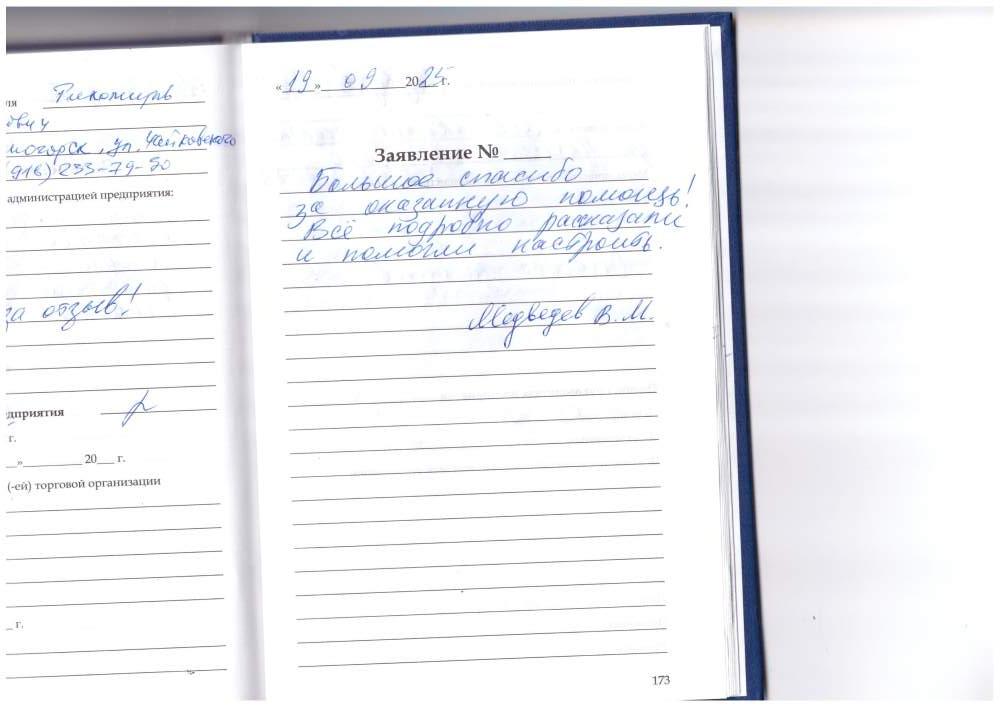 ля
ович
ногорск, ул. Чайковского
(916) 233-79-50
администрацией предприятия:
за отзыв!
едприятия
г.
» 20 г.
(-ей) торговой организации
г.
«19» 09 2025 г.
Заявление №
Большое спасибо
за оказанную помощь!
Всё подробно рассказали
и помогли настроить.
Медведев В.М.
173